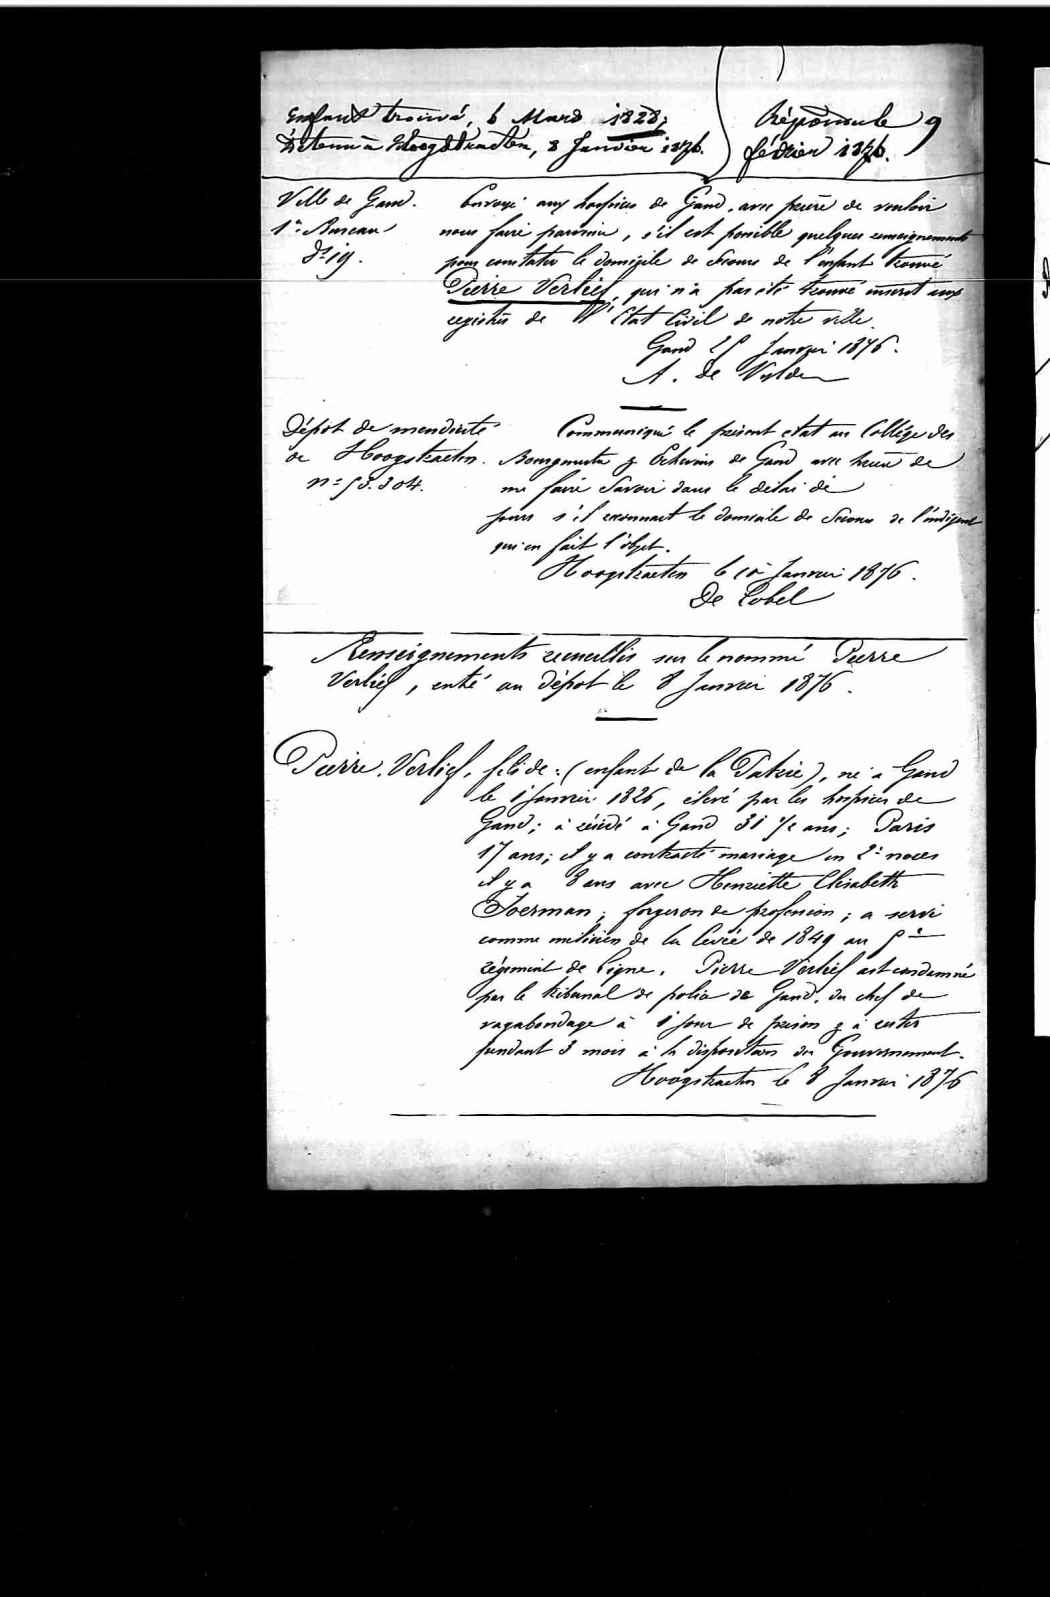 Enfant trouvé, 6 Mars 1828;
Détenu à Hoogstraeten, 8 Janvier 1876.
Répondu le 9
février 1876.
Ville de Gand.
1er Bureau
Envoyé aux hospices de Gand, avec prière de vouloir
nous faire parvenir, s'il est possible quelques renseignements
pour constater le domicile de secours de l'enfant trouvé
Pierre Verlief, qui n'a pas été trouvé inscrit aux
registres de l'Etat Civil de notre ville.
Gand 25 Janvier 1876.
A. de
Dépôt de mendicité
de Hoogstraeten.
n° 53.304.
Communiqué le présent état au Collège des
Bourgmestre & Echevins de Gand avec prière de
me faire savoir dans le délai de
jours s'il reconnait le domicile de secours de l'indigent
qui en fait l'objet.
Hoogstraeten le 10 Janvier 1876.
De Cobel
Renseignements recueillis sur le nommé Pierre
Verlief, entré au dépôt le 8 Janvier 1876.
Pierre Verlief, fils de: (enfant de la Patrie), né à Gand
le 1 Janvier 1826, élevé par les hospices de
Gand; a résidé à Gand 31 1/2 ans; Paris
17 ans; il y a contracté mariage en 2e noces
il y a 8 ans avec Henriette Elisabeth
forgeron de profession; a servi
comme milicien de la levée de 1849 au 5e
régiment de ligne. Pierre Verlief est condamné
par le tribunal de police de Gand, du chef de
vagabondage à 1 jour de prison & à rester
pendant 3 mois à la disposition du Gouvernement.
Hoogstraeten le 8 Janvier 1876